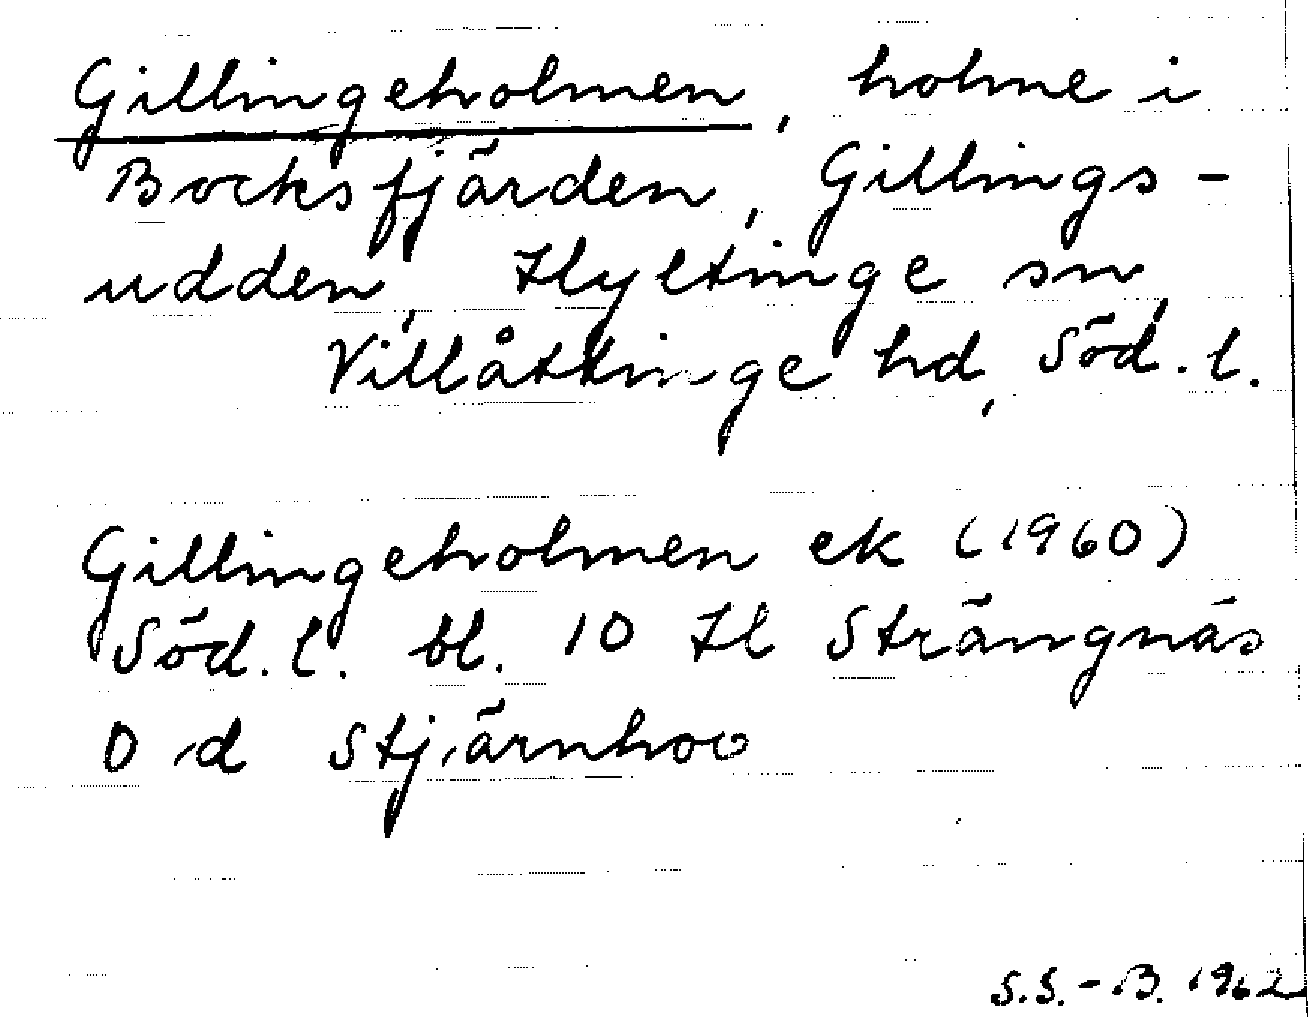 Gillingeholmen, holme i
Bocksfjärden, Gillings-
udden, Hyltinge sn,
Villåttinge hd, Söd. l.
Gillingeholmen ek (1960)
Söd. l. bl. 10 Hl Strängnäs
O d Stjärnhov
S.S.-B. 1962